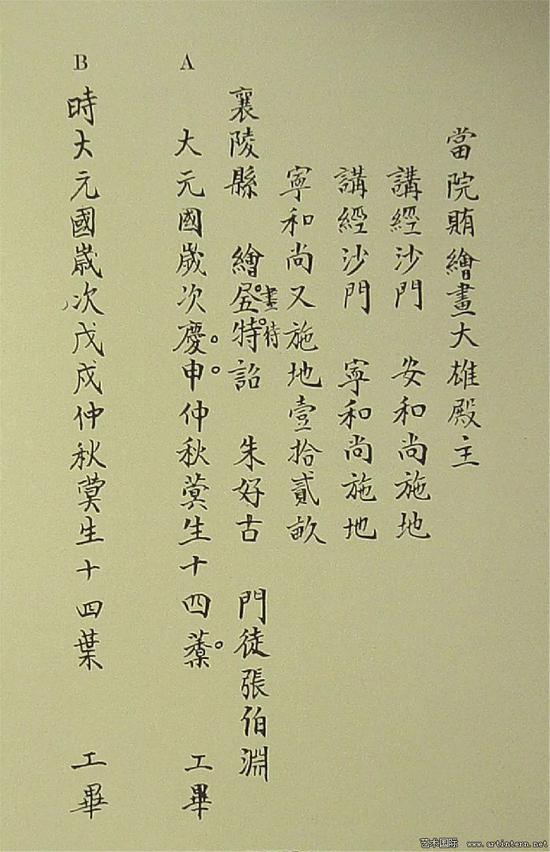 當院賄繪畫大雄殿主
講經沙門 安和尚施地
講經沙門 寧和尚施地
寧和尚又施地壹拾貳畝
襄陵縣 繪 特詔 朱好古 門徒張伯淵
畫待
A 大元國歲次慶申仲秋蓂生十四 工畢
B 時大元國歲次戊戌仲秋蓂生十四葉 工畢
艺术国际 www.artintern.net